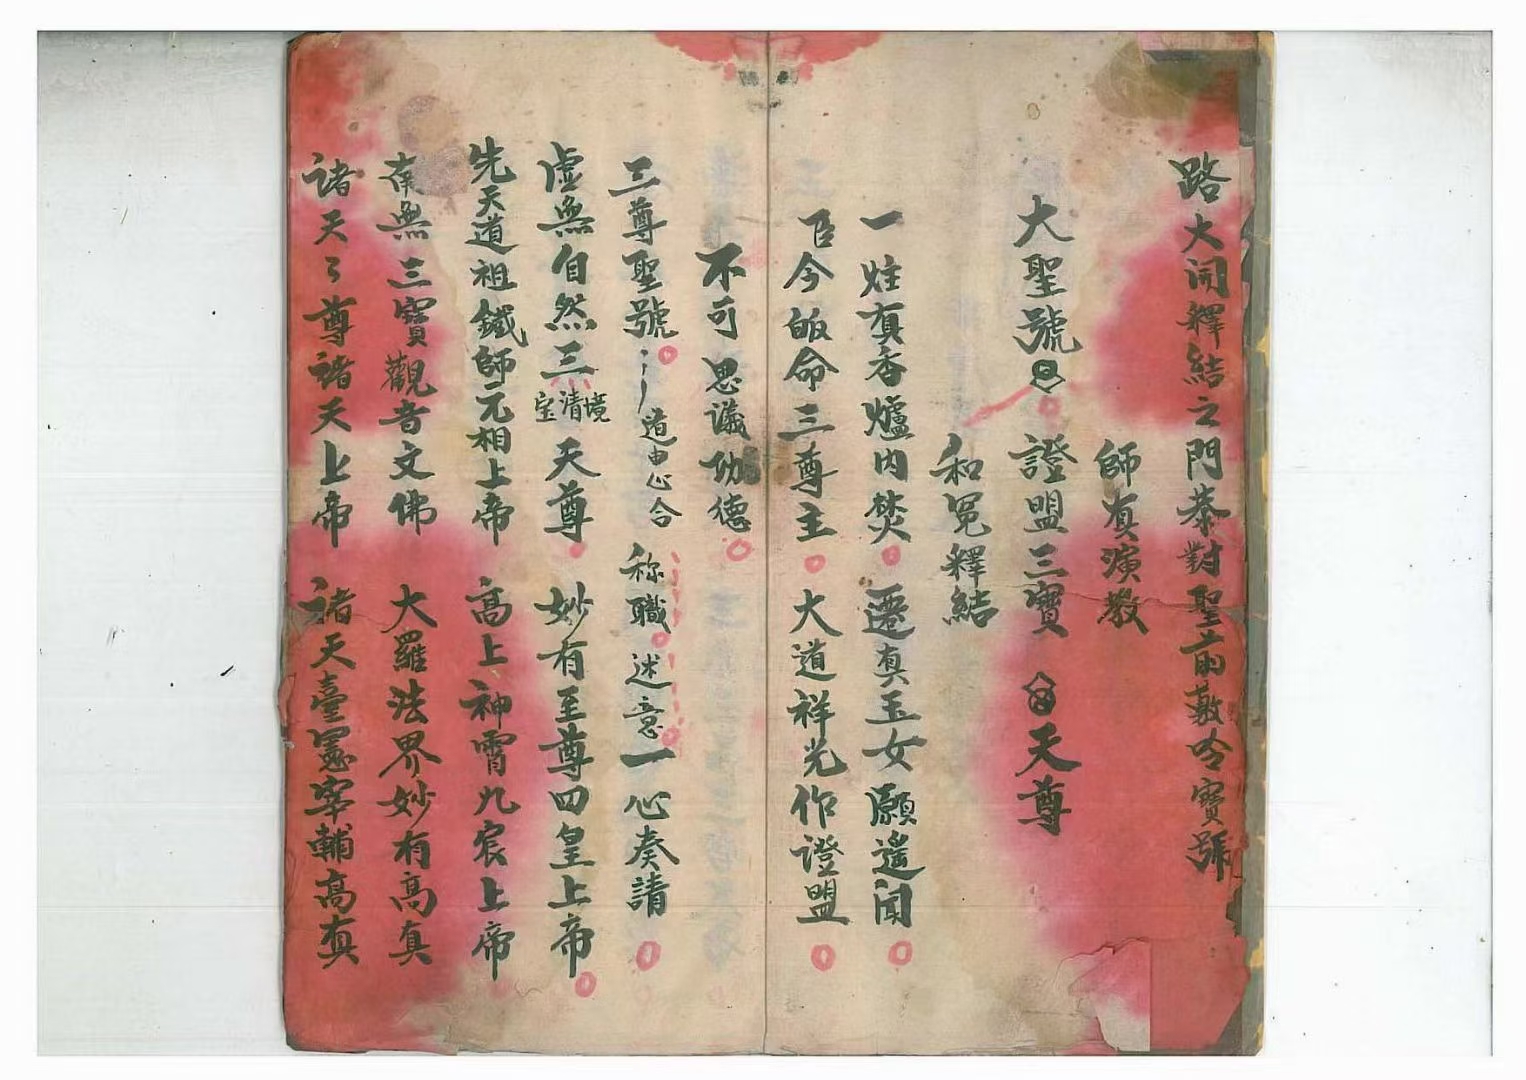 路大開釋結之門恭對聖前敷吟寶號
師真演教
大聖號 證盟三寶 天尊
和冤釋結
一炷真香爐內焚 遷真玉女願遙聞
臣今皈命三尊主 大道祥光作證盟
不可思議功德
三尊聖號 道由心合 称職 述意一心奏請
虛無自然三清境宝天尊 妙有至尊四皇上帝
先天道祖鐵師元相上帝 高上神霄九宸上帝
南無三寶觀音文佛 大羅法界妙有高真
諸天〻尊諸天上帝 諸天臺 宰輔高真